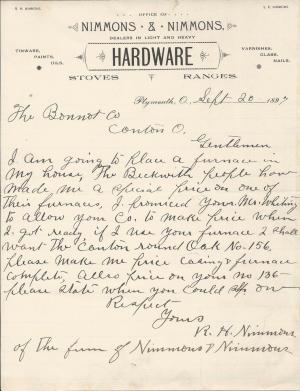 R. H. NIMMONS.
S. E. NIMMONS.
OFFICE OF
NIMMONS & NIMMONS,
DEALERS IN LIGHT AND HEAVY
TINWARE,
PAINTS,
OILS.
HARDWARE
VARNISHES,
GLASS,
NAILS.
STOVES RANGES.
Plymouth, O., Sept 20 1897
The Bonnot Co
Canton O.
Gentlemen
I am going to place a furnace in
my house, The Beckwith people have
made me a special price on one of
their furnaces, I promised your Mr. Whiting
to allow your Co. to make price when
I got ready if I use your furnace I shall
want the Canton round Oak No. 156,
please make me price casing & furnace
complete, allso price on your no 136-
please state when you could on
Respect
Yours
R. H. Nimmons
of the firm of Nimmons & Nimmons